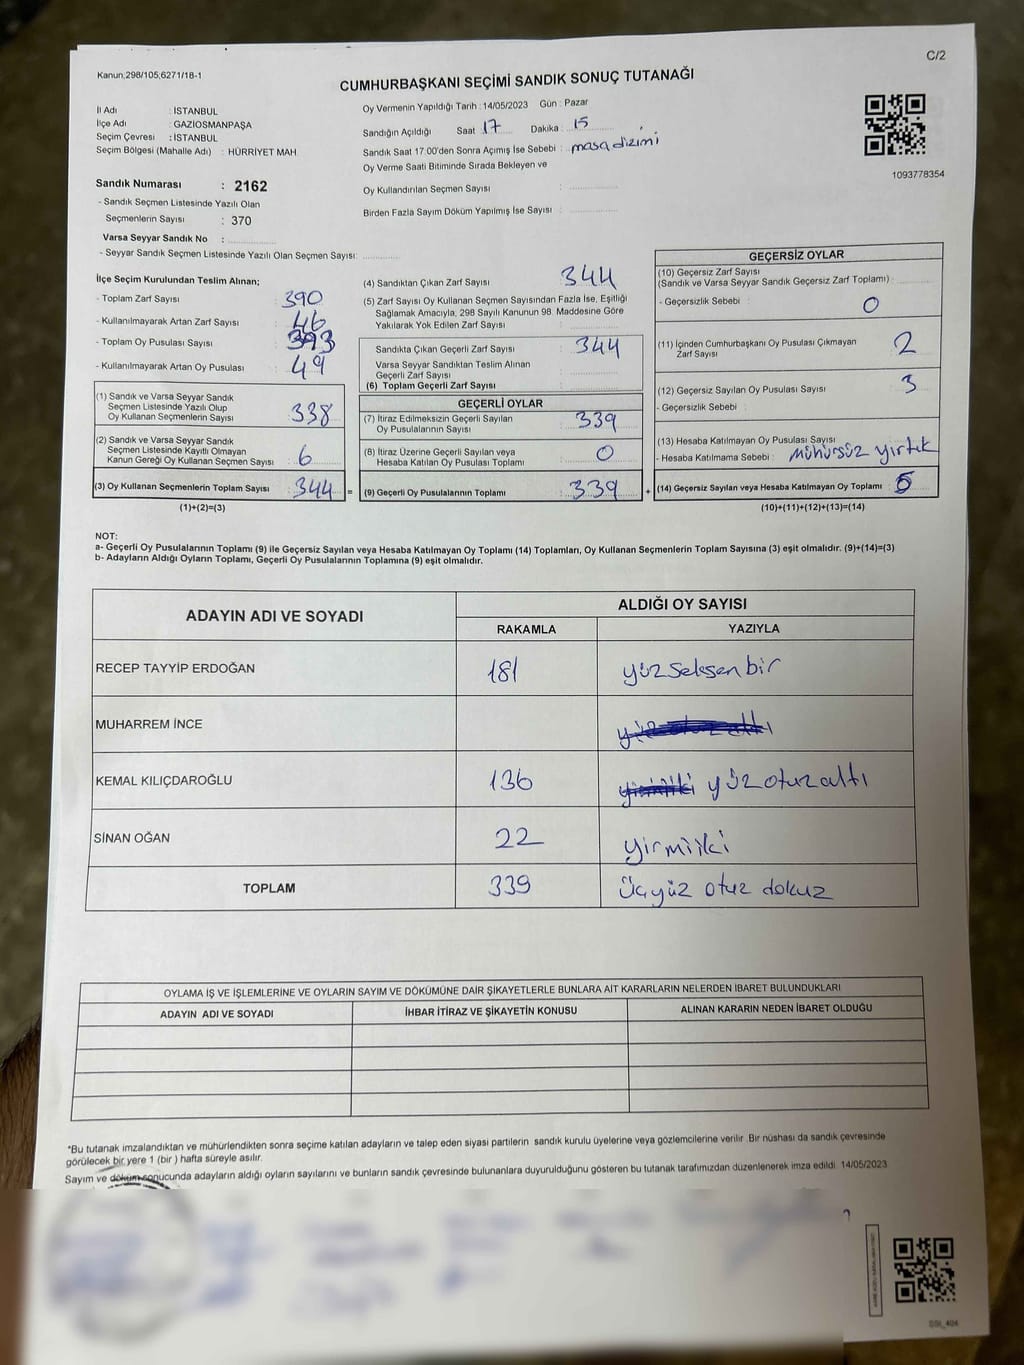 C/2
Kanun;298/105;6271/18-1
CUMHURBAŞKANI SEÇİMİ SANDIK SONUÇ TUTANAĞI
İl Adı : İSTANBUL
İlçe Adı : GAZİOSMANPAŞA
Seçim Çevresi : İSTANBUL
Seçim Bölgesi (Mahalle Adı) : HÜRRİYET MAH.
Sandık Numarası : 2162
- Sandık Seçmen Listesinde Yazılı Olan
Seçmenlerin Sayısı : 370
Varsa Seyyar Sandık No :
- Seyyar Sandık Seçmen Listesinde Yazılı Olan Seçmen Sayısı:
Oy Vermenin Yapıldığı Tarih : 14/05/2023 Gün : Pazar
Sandığın Açıldığı Saat 17 Dakika : 15
Sandık Saat 17.00'den Sonra Açımış İse Sebebi : masa dizimi
Oy Verme Saati Bitiminde Sırada Bekleyen ve
Oy Kullandırılan Seçmen Sayısı :
Birden Fazla Sayım Döküm Yapılmış İse Sayısı :
1093778354
İlçe Seçim Kurulundan Teslim Alınan;
- Toplam Zarf Sayısı : 390
- Kullanılmayarak Artan Zarf Sayısı : 46
- Toplam Oy Pusulası Sayısı : 393
- Kullanılmayarak Artan Oy Pusulası : 49
(1) Sandık ve Varsa Seyyar Sandık
Seçmen Listesinde Yazılı Olup
Oy Kullanan Seçmenlerin Sayısı : 338
(2) Sandık ve Varsa Seyyar Sandık
Seçmen Listesinde Kayıtlı Olmayan
Kanun Gereği Oy Kullanan Seçmen Sayısı : 6
(3) Oy Kullanan Seçmenlerin Toplam Sayısı : 344 =
(1)+(2)=(3)
(4) Sandıktan Çıkan Zarf Sayısı : 344
(5) Zarf Sayısı Oy Kullanan Seçmen Sayısından Fazla İse, Eşitliği
Sağlamak Amacıyla, 298 Sayılı Kanunun 98. Maddesine Göre
Yakılarak Yok Edilen Zarf Sayısı :
Sandıkta Çıkan Geçerli Zarf Sayısı : 344
Varsa Seyyar Sandıktan Teslim Alınan
Geçerli Zarf Sayısı :
(6) Toplam Geçerli Zarf Sayısı :
GEÇERLİ OYLAR
(7) İtiraz Edilmeksizin Geçerli Sayılan
Oy Pusulalarının Sayısı : 339
(8) İtiraz Üzerine Geçerli Sayılan veya
Hesaba Katılan Oy Pusulası Toplamı : 0
(9) Geçerli Oy Pusulalarının Toplamı : 339 +
GEÇERSİZ OYLAR
(10) Geçersiz Zarf Sayısı
(Sandık ve Varsa Seyyar Sandık Geçersiz Zarf Toplamı) :
- Geçersizlik Sebebi : 0
(11) İçinden Cumhurbaşkanı Oy Pusulası Çıkmayan
Zarf Sayısı : 2
(12) Geçersiz Sayılan Oy Pusulası Sayısı : 3
- Geçersizlik Sebebi :
(13) Hesaba Katılmayan Oy Pusulası Sayısı :
- Hesaba Katılmama Sebebi : Mühürsüz yırtık
(14) Geçersiz Sayılan veya Hesaba Katılmayan Oy Toplamı : 5
(10)+(11)+(12)+(13)=(14)
NOT:
a- Geçerli Oy Pusulalarının Toplamı (9) ile Geçersiz Sayılan veya Hesaba Katılmayan Oy Toplamı (14) Toplamları, Oy Kullanan Seçmenlerin Toplam Sayısına (3) eşit olmalıdır. (9)+(14)=(3)
b- Adayların Aldığı Oyların Toplamı, Geçerli Oy Pusulalarının Toplamına (9) eşit olmalıdır.
ADAYIN ADI VE SOYADI
ALDIĞI OY SAYISI
RAKAMLA YAZIYLA
RECEP TAYYİP ERDOĞAN 181 yüz seksen bir
MUHARREM İNCE yüz otuz altı
KEMAL KILIÇDAROĞLU 136 yirmiiki yüz otuz altı
SİNAN OĞAN 22 yirmiiki
TOPLAM 339 üçyüz otuz dokuz
OYLAMA İŞ VE İŞLEMLERİNE VE OYLARIN SAYIM VE DÖKÜMÜNE DAİR ŞİKAYETLERLE BUNLARA AİT KARARLARIN NELERDEN İBARET BULUNDUKLARI
ADAYIN ADI VE SOYADI İHBAR İTİRAZ VE ŞİKAYETİN KONUSU ALINAN KARARIN NEDEN İBARET OLDUĞU
*Bu tutanak imzalandıktan ve mühürlendikten sonra seçime katılan adayların ve talep eden siyasi partilerin sandık kurulu üyelerine veya gözlemcilerine verilir. Bir nüshası da sandık çevresinde
görülecek bir yere 1 (bir ) hafta süreyle asılır.
Sayım ve döküm sonucunda adayların aldığı oyların sayılarını ve bunların sandık çevresinde bulunanlara duyurulduğunu gösteren bu tutanak tarafımızdan düzenlenerek imza edildi. 14/05/2023